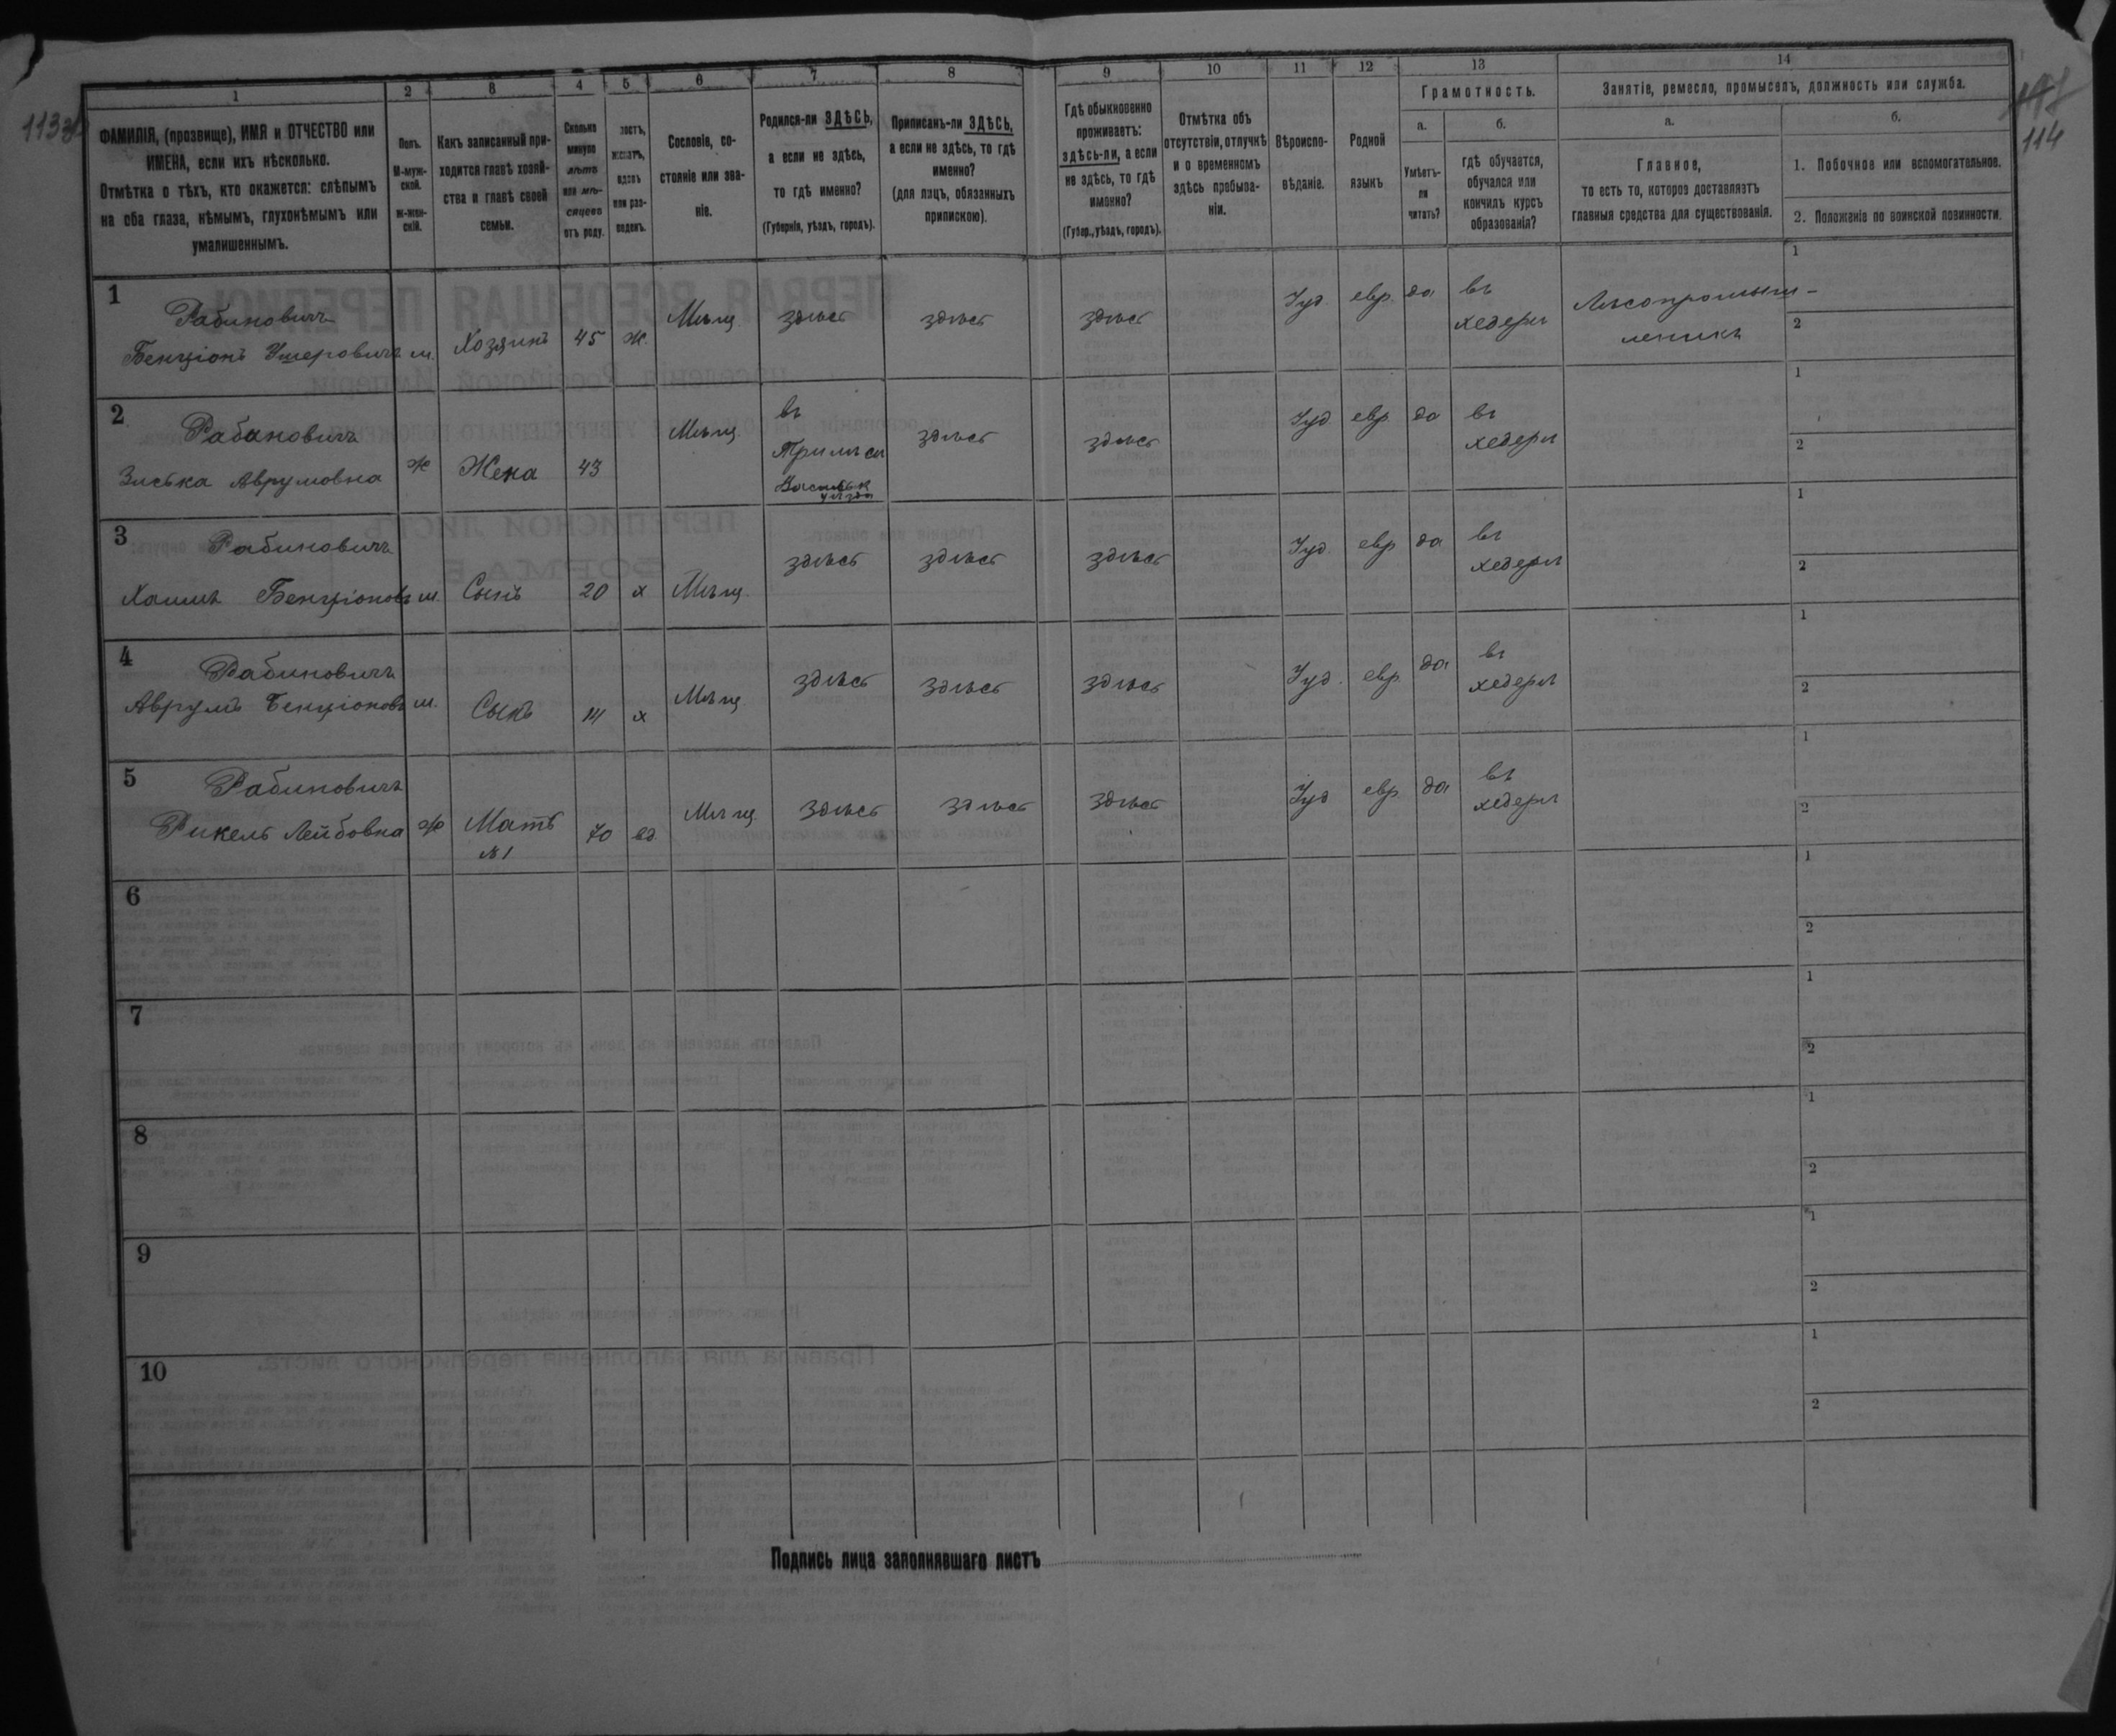 113
114
1 2 3 4 5 6 7 8 9 10 11 12 13 14
ФАМИЛІЯ, (прозвище), ИМЯ и ОТЧЕСТВО или
ИМЕНА, если ихъ нѣсколько.
Отмѣтка о тѣхъ, кто окажется: слѣпымъ
на оба глаза, нѣмымъ, глухонѣмымъ или
умалишеннымъ.
Полъ.
М-муж-
ской.
ж-жен-
скій.
Какъ записанный при-
ходится главѣ хозяй-
ства и главѣ своей
семьи.
Сколько
минуло
лѣтъ
или мѣ-
сяцевъ
отъ роду.
лостъ,
женатъ,
вдовъ
или раз-
веденъ.
Сословіе, со-
стояніе или зва-
ніе.
Родился-ли ЗДѢСЬ,
а если не здѣсь,
то гдѣ именно?
(Губернія, уѣздъ, городъ).
Приписанъ-ли ЗДѢСЬ,
а если не здѣсь, то гдѣ
именно?
(для лицъ, обязанныхъ
припискою).
Гдѣ обыкновенно
проживаетъ:
здѣсь-ли, а если
не здѣсь, то гдѣ
именно?
(Губер., уѣздъ, городъ).
Отмѣтка объ
отсутствіи, отлучкѣ
и о временномъ
здѣсь пребыва-
ніи.
Вѣроиспо-
вѣданіе.
Родной
языкъ
Грамотность.
а.
Умѣетъ-
ли
читать?
б.
гдѣ обучается,
обучался или
кончилъ курсъ
образованія?
Занятіе, ремесло, промыселъ, должность или служба.
а.
Главное,
то есть то, которое доставляетъ
главныя средства для существованія.
б.
1. Побочное или вспомогательное.
2. Положеніе по воинской повинности.
1
Рабиновичъ
Бенціонъ Ушеровичъ
м.
Хозяинъ
45
ж.
Мѣщ.
здѣсь
здѣсь
здѣсь
Іуд.
евр.
да
въ
хедерѣ
Лѣсопромыш-
леникъ
1
2
2
Рабиновичъ
Зиська Аврумовна
ж
Жена
43
Мѣщ.
въ
здѣсь
здѣсь
Іуд
евр.
да
въ
хедерѣ
1
2
3
Рабиновичъ
Хаимъ Бенціоновъ
м.
Сынъ
20
х
Мѣщ.
здѣсь
здѣсь
здѣсь
Іуд.
евр
да
въ
хедерѣ
1
2
4
Рабиновичъ
Аврумъ Бенціоновъ
м.
Сынъ
14
х
Мѣщ.
здѣсь
здѣсь
здѣсь
Іуд.
евр.
да
въ
хедерѣ
1
2
5
Рабиновичъ
Рикель Лейбовна
ж
Мать
№1
70
вд.
Мѣщ.
здѣсь
здѣсь
здѣсь
Іуд
евр.
да
въ
хедерѣ
1
2
6
1
2
7
1
2
8
1
2
9
1
2
10
1
2
Подпись лица заполнявшаго листъ